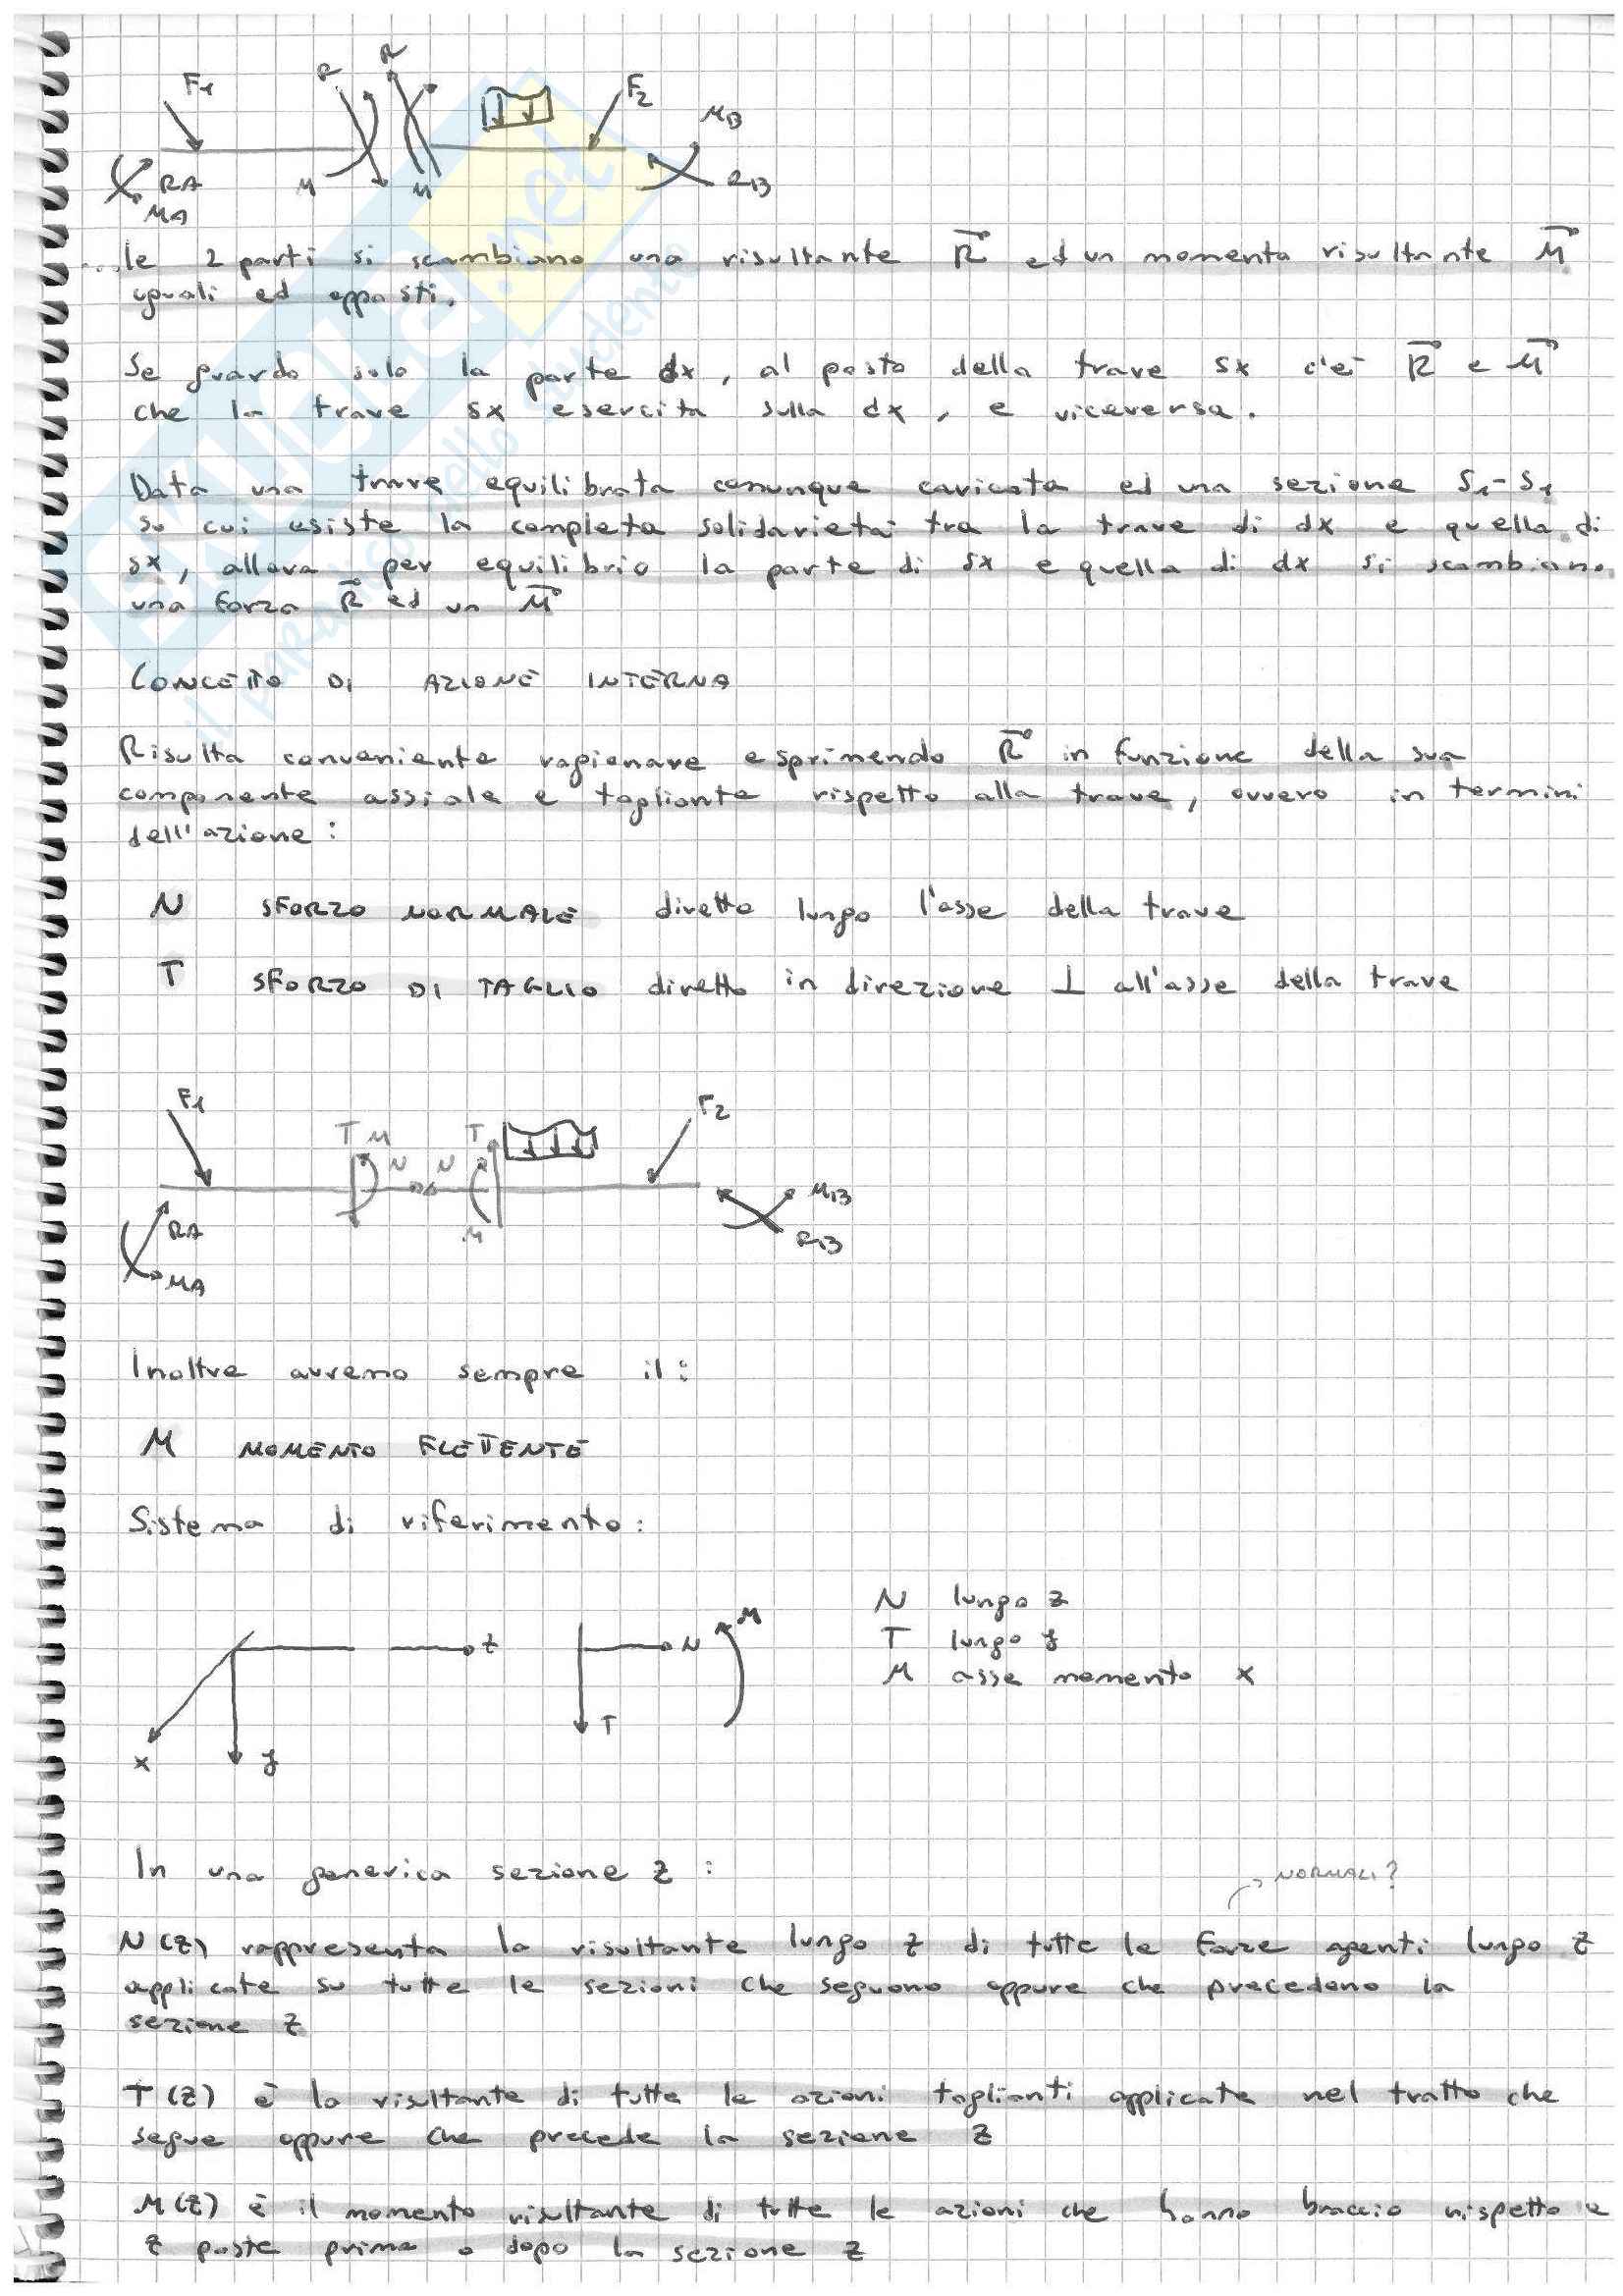 F1 R R F2 MB
RA M M RB
MA
le 2 parti si scambiano una risultante R ed un momento risultante M
uguali ed opposti.
Se guardo solo la parte dx, al posto della trave sx c'è R e M
che la trave sx esercita sulla dx, e viceversa.
Data una trave equilibrata comunque caricata ed una sezione S1-S1
su cui esiste la completa solidarietà tra la trave di dx e quella di
sx, allora per equilibrio la parte di sx e quella di dx si scambiano
una forza R ed un M
CONCETTO DI AZIONE INTERNA
Risulta conveniente ragionare esprimendo R in funzione della sua
componente assiale e tagliante rispetto alla trave, ovvero in termini
dell'azione:
N SFORZO NORMALE diretto lungo l'asse della trave
T SFORZO DI TAGLIO diretto in direzione ⊥ all'asse della trave
F1 T M N N T F2
RA M MB
MA RB
Inoltre avremo sempre il:
M MOMENTO FLETTENTE
Sistema di riferimento:
N lungo z
z N M T lungo y
M asse momento x
x y T
In una generica sezione z:
NORMALI?
N(z) rappresenta la risultante lungo z di tutte le forze agenti lungo z
applicate su tutte le sezioni che seguono oppure che precedono la
sezione z
T(z) è la risultante di tutte le azioni taglianti applicate nel tratto che
segue oppure che precede la sezione z
M(z) è il momento risultante di tutte le azioni che hanno braccio rispetto a
z poste prima o dopo la sezione z